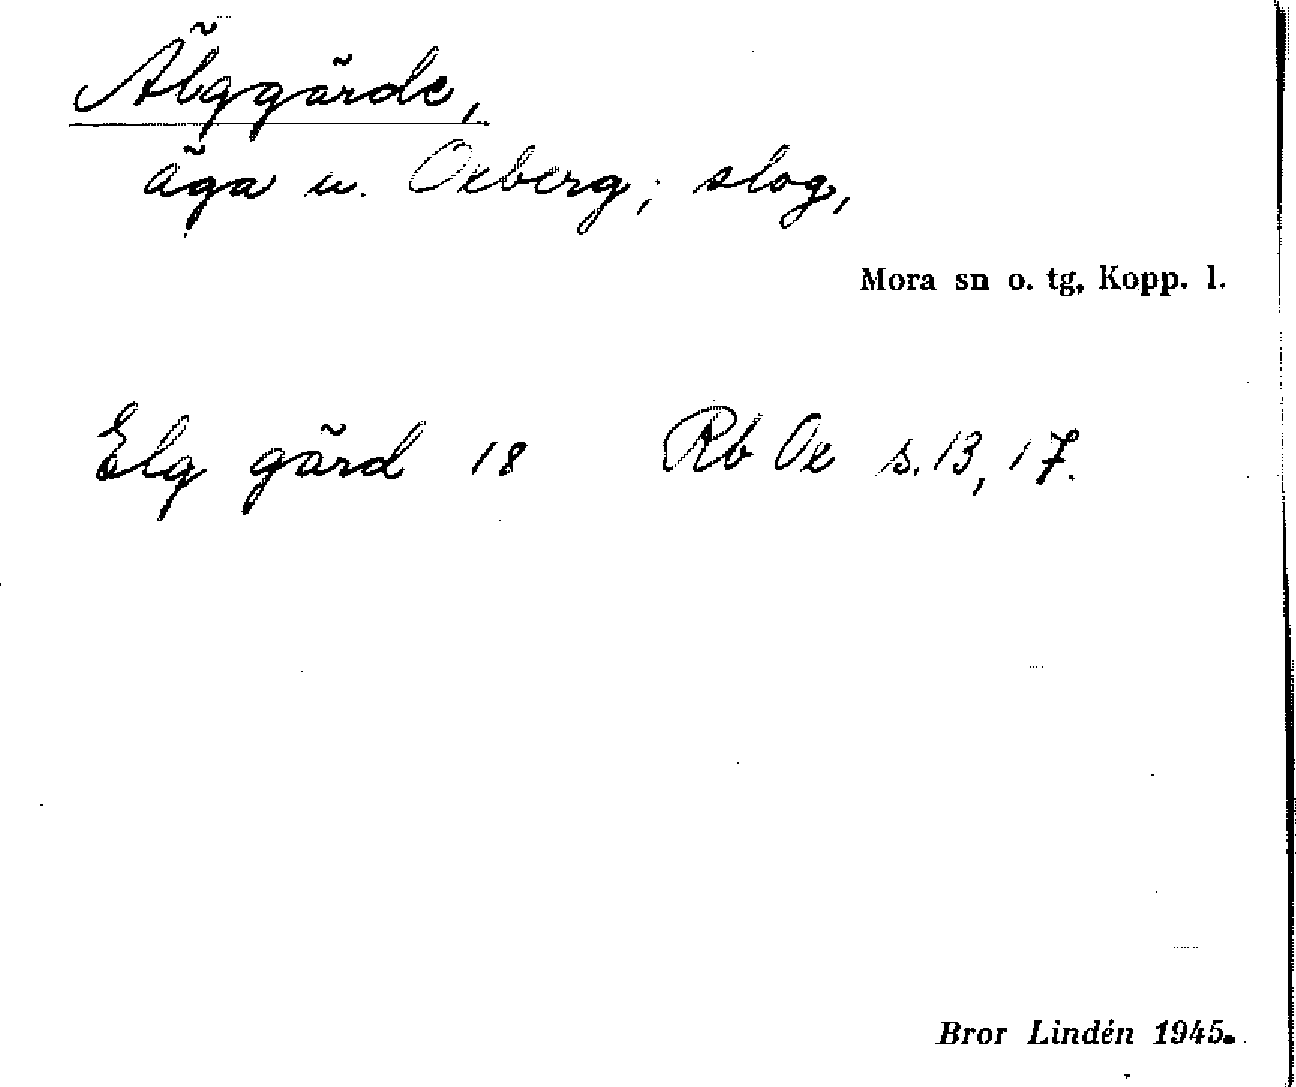 Älggärde,
äga u. Oxberg; slog,
Mora sn o. tg, Kopp. l.
Elg gärd 18 Rb Ox s. 13, 17.
Bror Lindén 1945.